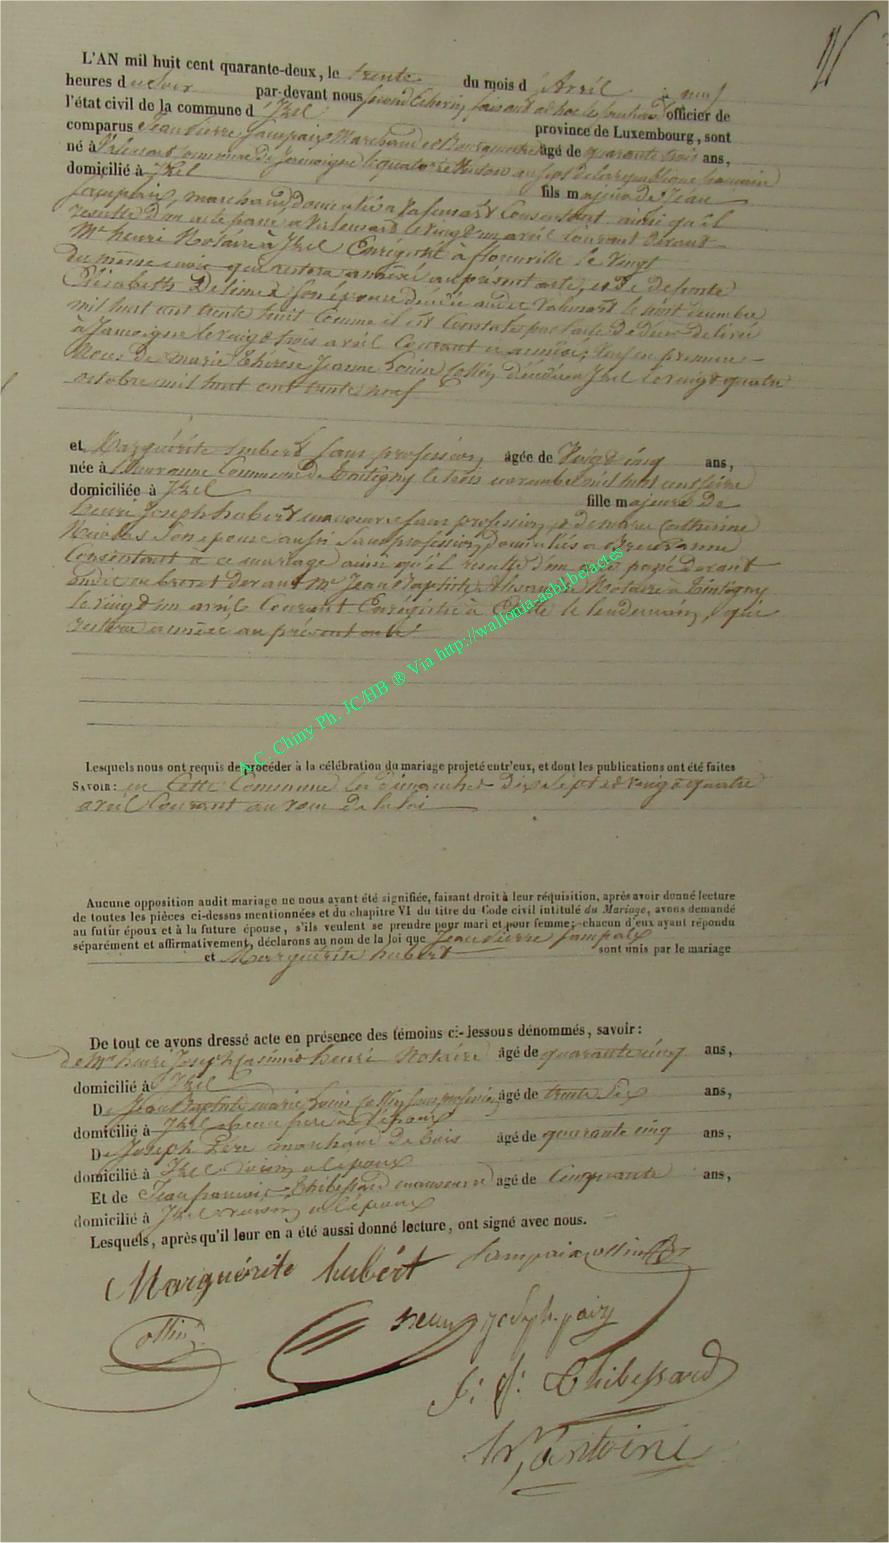 L'AN mil huit cent quarante-deux, le trente du mois d'Avril à neuf
heures du Soir par-devant nous second Echevin, faisant officier de
l'état civil de la commune d'Izel, province de Luxembourg, sont
comparus Jean Pierre Lampaix Marchand âgé de quarante trois ans,
né à Valensart Commune de Jamoigne le quatorze an sept de la république
domicilié à Izel fils majeur de Jean
Lampaix, marchand domicilié à Valensart Consentant ainsi qu'il
résulte d'un acte passé à Valensart le vingt un avril courant devant
Me henri Notaire à Izel Enrégistré à florenville le vingt
du même mois qui restera annéxé au présent acte, et de défunte
Elisabeth son épouse décédée audit Valensart le décembre
mil huit cent trente huit Comme il est Constaté par l'acte de décès délivré
à Jamoigne le vingt trois avril Courant et annéxé; Veuf en premiere
Noces de marie thérèse Jeanne Louise Collin décédée à Izel le vingt quatre
octobre mil huit cent trente neuf
et Marguérite hubert sans profession, agée de Vingt cinq ans,
née à Breuvanne Commune de tintigny le trois novembre mil huit cent seize
domiciliée à Izel fille majeure de
henri Joseph hubert manoeuvre sans profession, et de marie Catherine
Nicolas son épouse aussi sans profession, domiciliés à Breuvanne
Consentant à ce mariage ainsi qu'il résulte d'un acte passé devant
en brevet devant Me Jean Baptiste Notaire à tintigny
le vingt un avril Courant Enrégistré à Etalle le lendemain, qui
restera annéxé au présent acte
A.C. Chiny Ph. JC/HB ® Via http://wallonia-asbl.be/actes
Lesquels nous ont requis de procéder à la célébration du mariage projeté entr'eux, et dont les publications ont été faites
SAVOIR: en Cette Commune les dimanches dix sept et vingt quatre
avril Courant au vœu de la loi
Aucune opposition audit mariage ne nous ayant été signifiée, faisant droit à leur réquisition, après avoir donné lecture
de toutes les pièces ci-dessus mentionnées et du chapitre VI du titre du Code civil intitulé du Mariage, avons demandé
au futur époux et à la future épouse, s'ils veulent se prendre pour mari et pour femme; chacun d'eux ayant répondu
séparément et affirmativement, déclarons au nom de la loi que Jean Pierre Lampaix
et Marguérite hubert sont unis par le mariage
De tout ce avons dressé acte en présence des témoins ci-dessous dénommés, savoir:
de Me henri Joseph Casimir henri Notaire âgé de quarante cinq ans,
domicilié à Izel
De Jean Baptiste marie Louis Collin sans profession âgé de trente six ans,
domicilié à Izel beau frère à l'époux
De Joseph Père marchand de bois âgé de quarante cinq ans,
domicilié à Izel voisin à l'époux
Et de Jean françois Thibessard manoeuvre agé de Cinquante ans,
domicilié à Izel voisin à l'époux
Lesquels, après qu'il leur en a été aussi donné lecture, ont signé avec nous.
Marguérite hubért Lampaix collin
Collin henri Joseph
J: f: Thibessard
Antoine